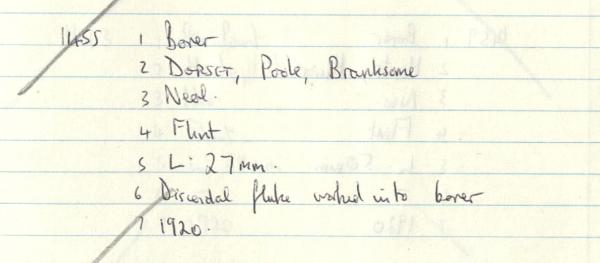 1455 1 Borer
2 DORSET, Poole, Branksome
3 Neol.
4 Flint
5 L: 27mm.
6 Discoidal flake worked into borer
7 1920.